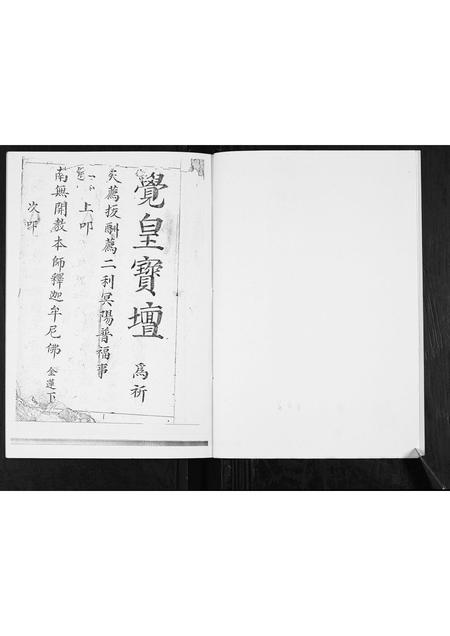 覺皇寶壇 爲祈
薦拔酬薦二利冥陽普福事
上叩
南無開教本師釋迦牟尼佛 金蓮下
次叩